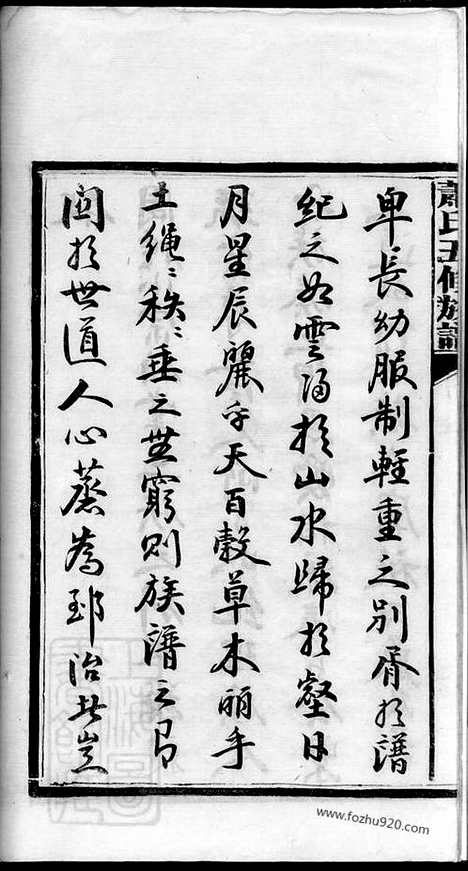 蕭氏五修族譜
卑長幼服制輕重之別胥於譜
紀之如雲歸於山水歸於壑日
月星辰麗乎天百穀草木丽乎
土繩〻秩〻垂之無窮則族譜之有
関於世道人心蒸為郅治者豈
www.fozhu920.com